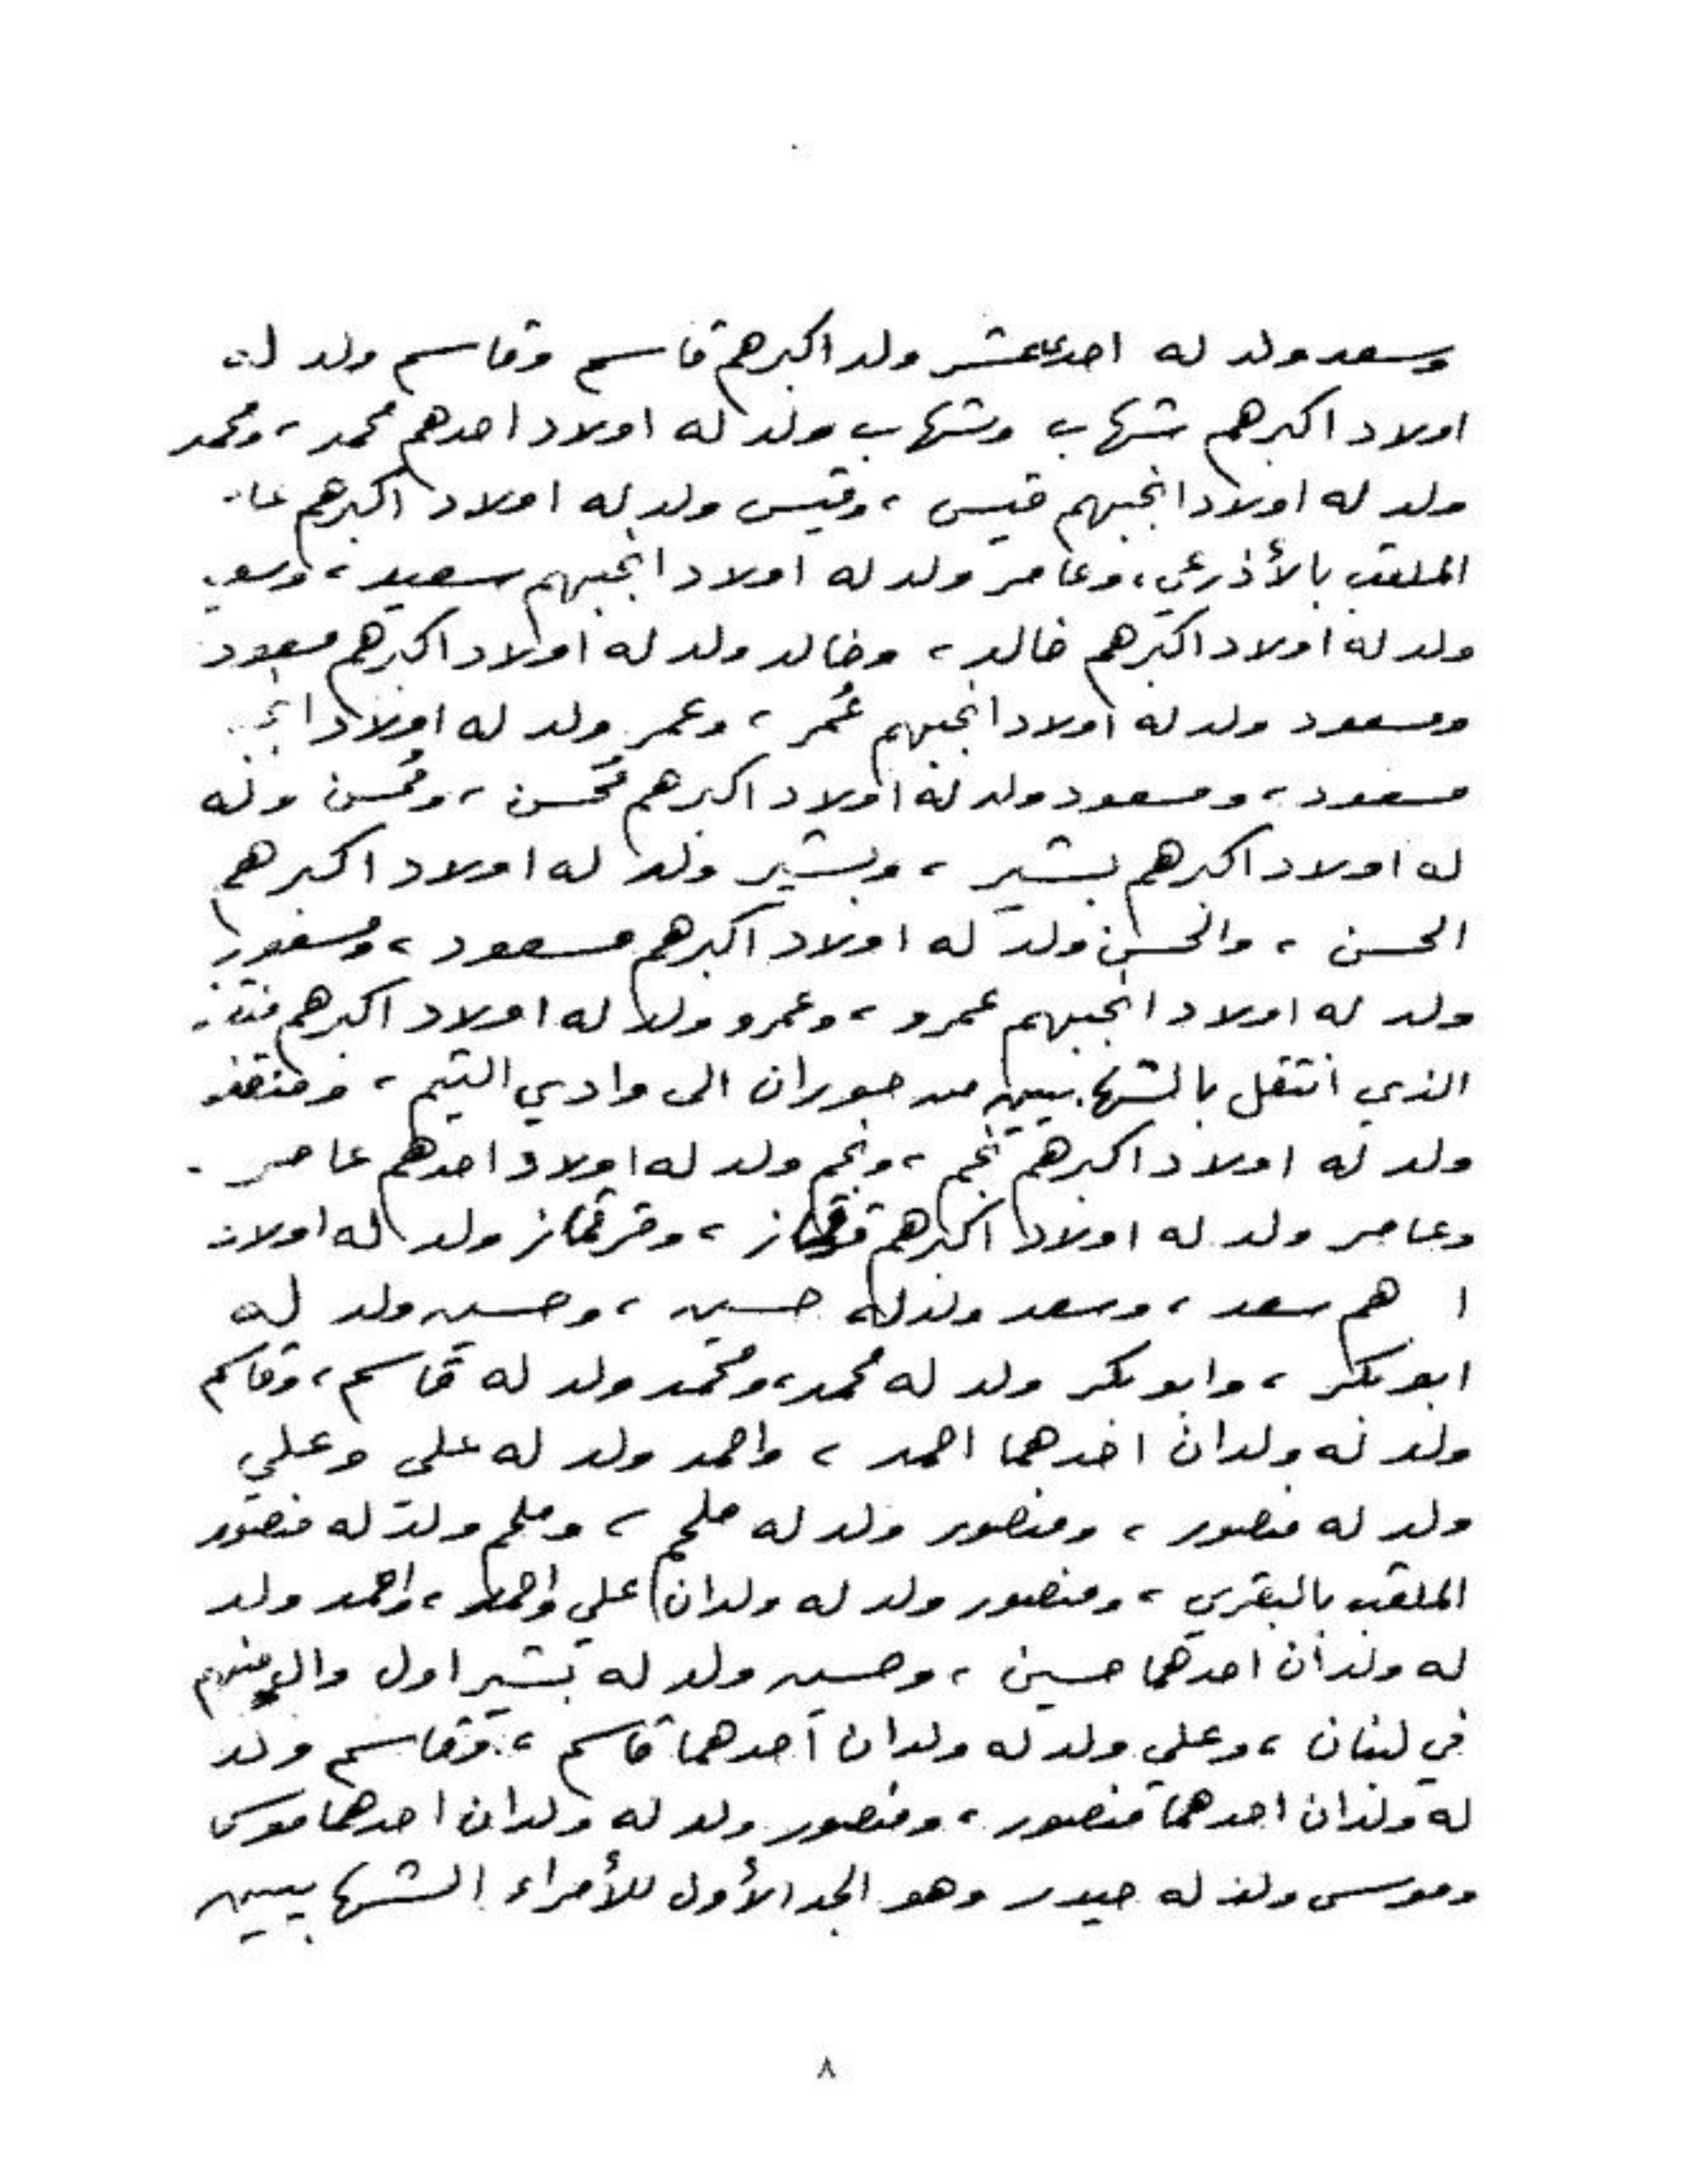 وسعد ولد له احد عشر ولد اكبرهم قاسم وقاسم ولد له
اولاد اكبرهم شهاب وشهاب ولد له اولاد احدهم محمد ، ومحمد
ولد له اولاد انجبهم قيس ، وقيس ولد له اولاد اكبرهم
الملقب بالأذرعي ، وعامر ولد له اولاد انجبهم سعيد ،
ولد له اولاد اكبرهم خالد ، وخالد ولد له اولاد اكبرهم مسعود
ومسعود ولد له اولاد انجبهم عُمر ، وعمر ولد له اولاد
مسعود ، ومسعود ولد له اولاد اكبرهم مُحسن ، ومُحسن ولد
له اولاد اكبرهم بشير ، وبشير ولد له اولاد اكبرهم
الحسن ، والحسن ولد له اولاد اكبرهم مسعود ، ومسعود
ولد له اولاد انجبهم عمرو ، وعمرو ولد له اولاد اكبرهم
الذي انتقل بالشهابيين من حوران الى وادي التيم ، ومنقذ
ولد له اولاد اكبرهم نجم ، ونجم ولد له اولاد احدهم عامر .
وعامر ولد له اولاد اكبرهم قرقماز ، وقرقماز ولد له اولاد
هم سعد ، وسعد ولد له حسين ، وحسين ولد له
ابو بكر ، وابو بكر ولد له محمد ، ومحمد ولد له قاسم ، وقاسم
ولد له ولدان احدهما احمد ، واحمد ولد له علي وعلي
ولد له منصور ، ومنصور ولد له ملحم ، وملحم ولد له منصور
الملقب بالبقري ، ومنصور ولد له ولدان علي واحمد ، واحمد ولد
له ولدان احدهما حسين ، وحسين ولد له بشير اول والٍ منهم
في لبنان ، وعلي ولد له ولدان احدهما قاسم ، وقاسم ولد
له ولدان احدهما منصور ، ومنصور ولد له ولدان احدهما موسى
وموسى ولد له حيدر وهو الجد الأول للأمراء الشهابيين
٨